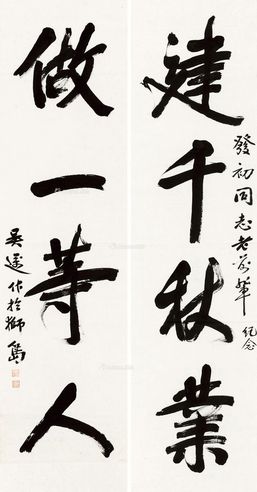 建千秋業
發初同志老前輩
紀念
做一等人
吳蓬作於獅島